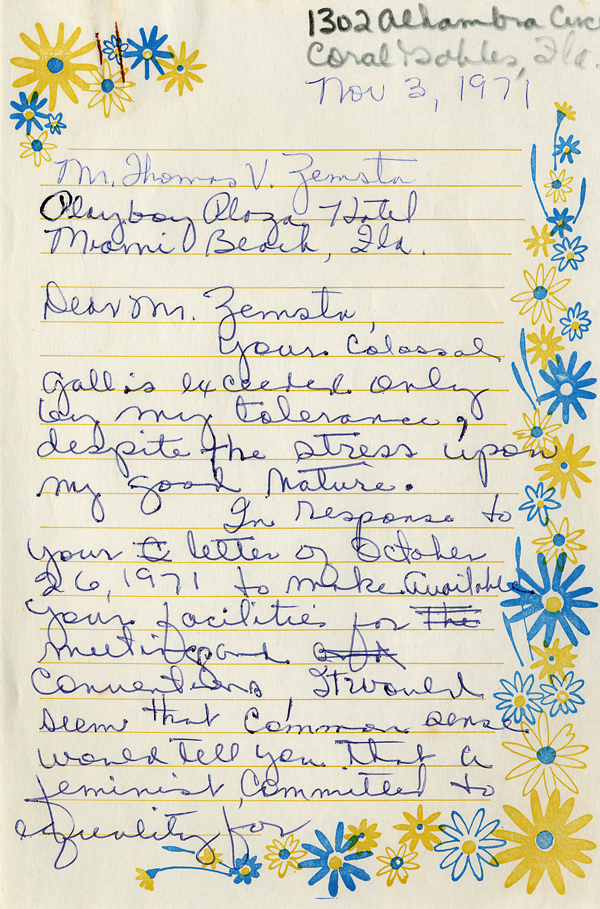 1302 Alhambra Circ
Coral Gables, Fla.
Nov 3, 1971
Mr. Thomas V. Zemsta
Playboy Plaza Hotel
Miami Beach, Fla.
Dear Mr. Zemsta,
Your colossal
gall is exceeded only
by my tolerance,
despite the stress upon
my good nature.
In response to
your letter of October
26, 1971 to make available
your facilities for the
meeting and
conventions, it would
seem that common sense
would tell you that a
feminist, committed to
equality for